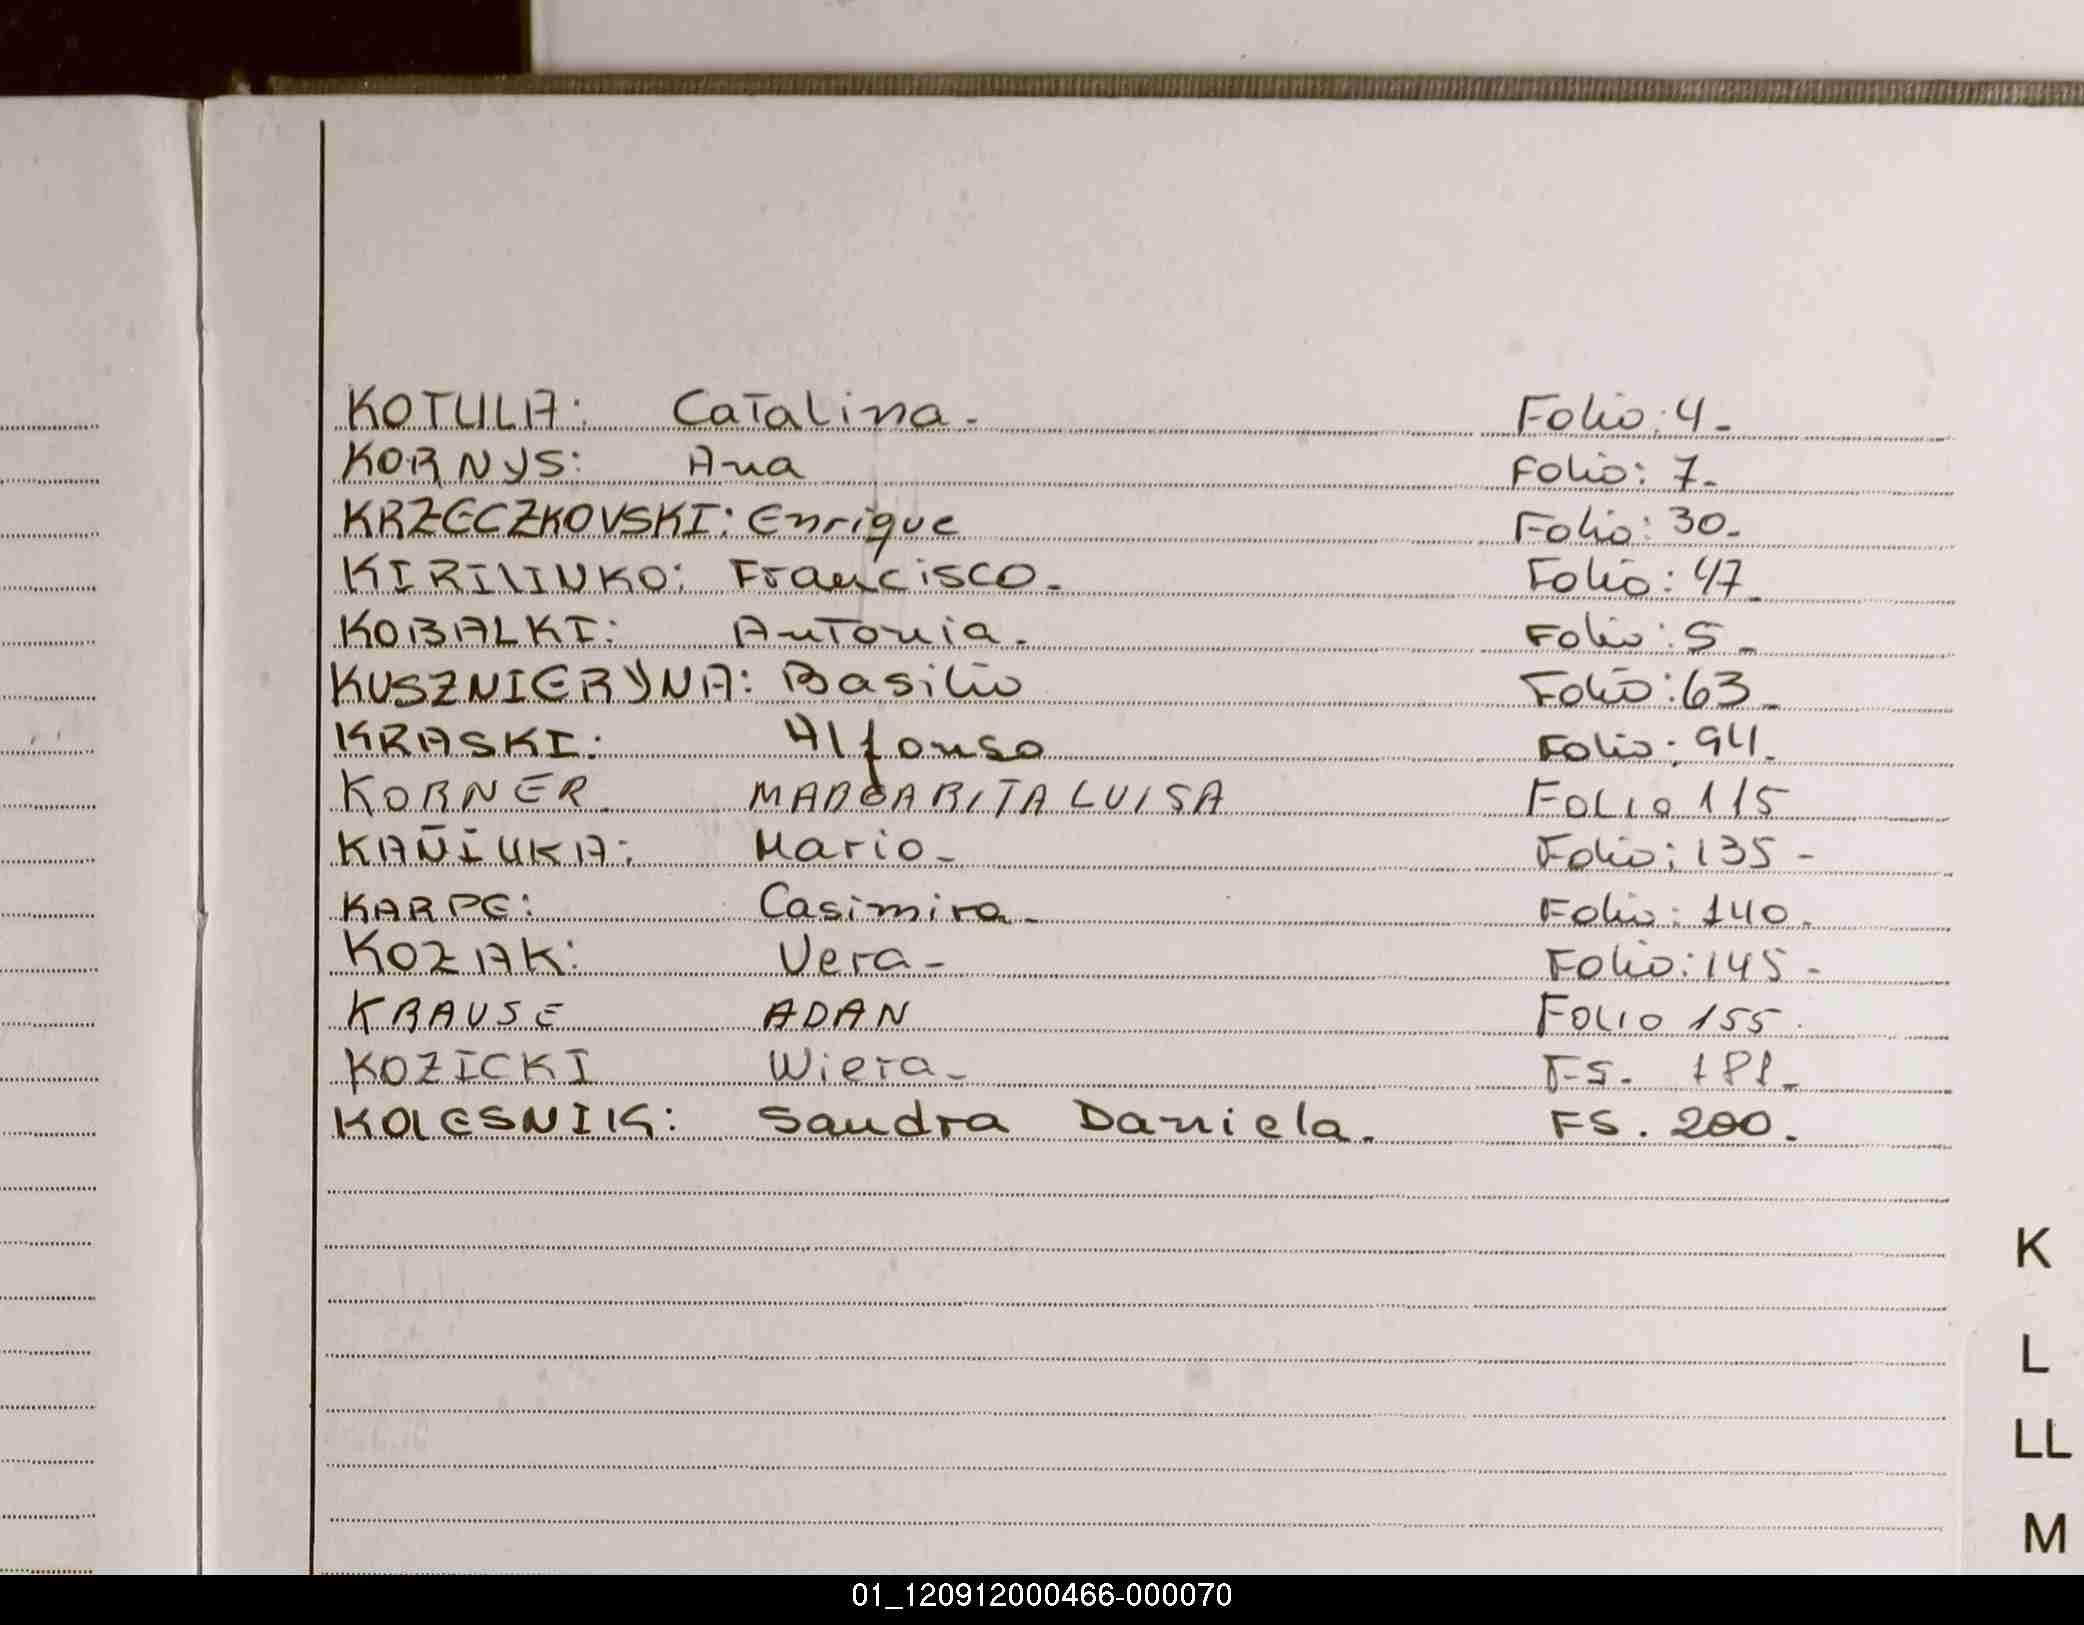 KOTULA: Catalina. Folio: 4.
KORNYS: Ana Folio: 7.
KRZECZKOVSKI: Enrique Folio: 30.
KIRILINKO: Francisco. Folio: 47.
KOBALKI: Antonia. Folio: 5.
KUSZNIERYNA: Basilio Folio: 63.
KRASKI: Alfonso Folio: 94.
KORNER. MARGARITA LUISA FOLIO 115
KAÑIUKA: Mario. Folio: 135-
KARPE: Casimira. Folio: 140.
KOZAK: Vera- Folio: 145-
KRAUSE ADAN FOLIO 155.
KOZICKI Wiera- FS. 181-
KOLESNIK: Sandra Daniela. FS. 200.
K
L
LL
M
01_120912000466-000070